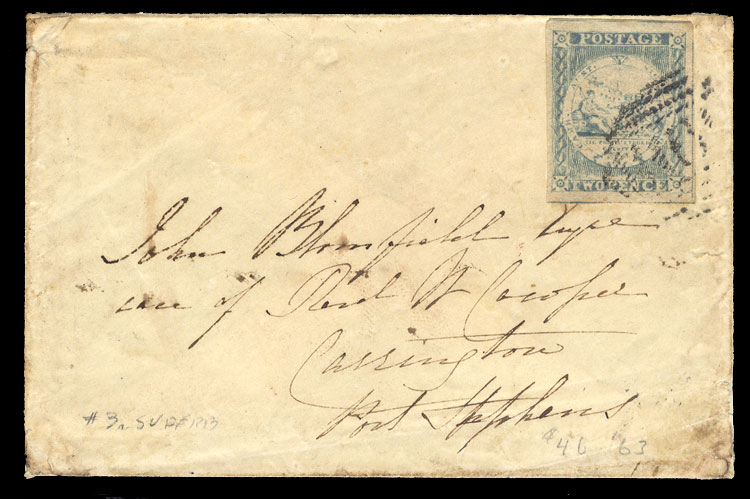 POSTAGE
TWO PENCE
John Blomfield
care of Revd W Cowper
Carrington
Port Stephens
#3a SUPERB